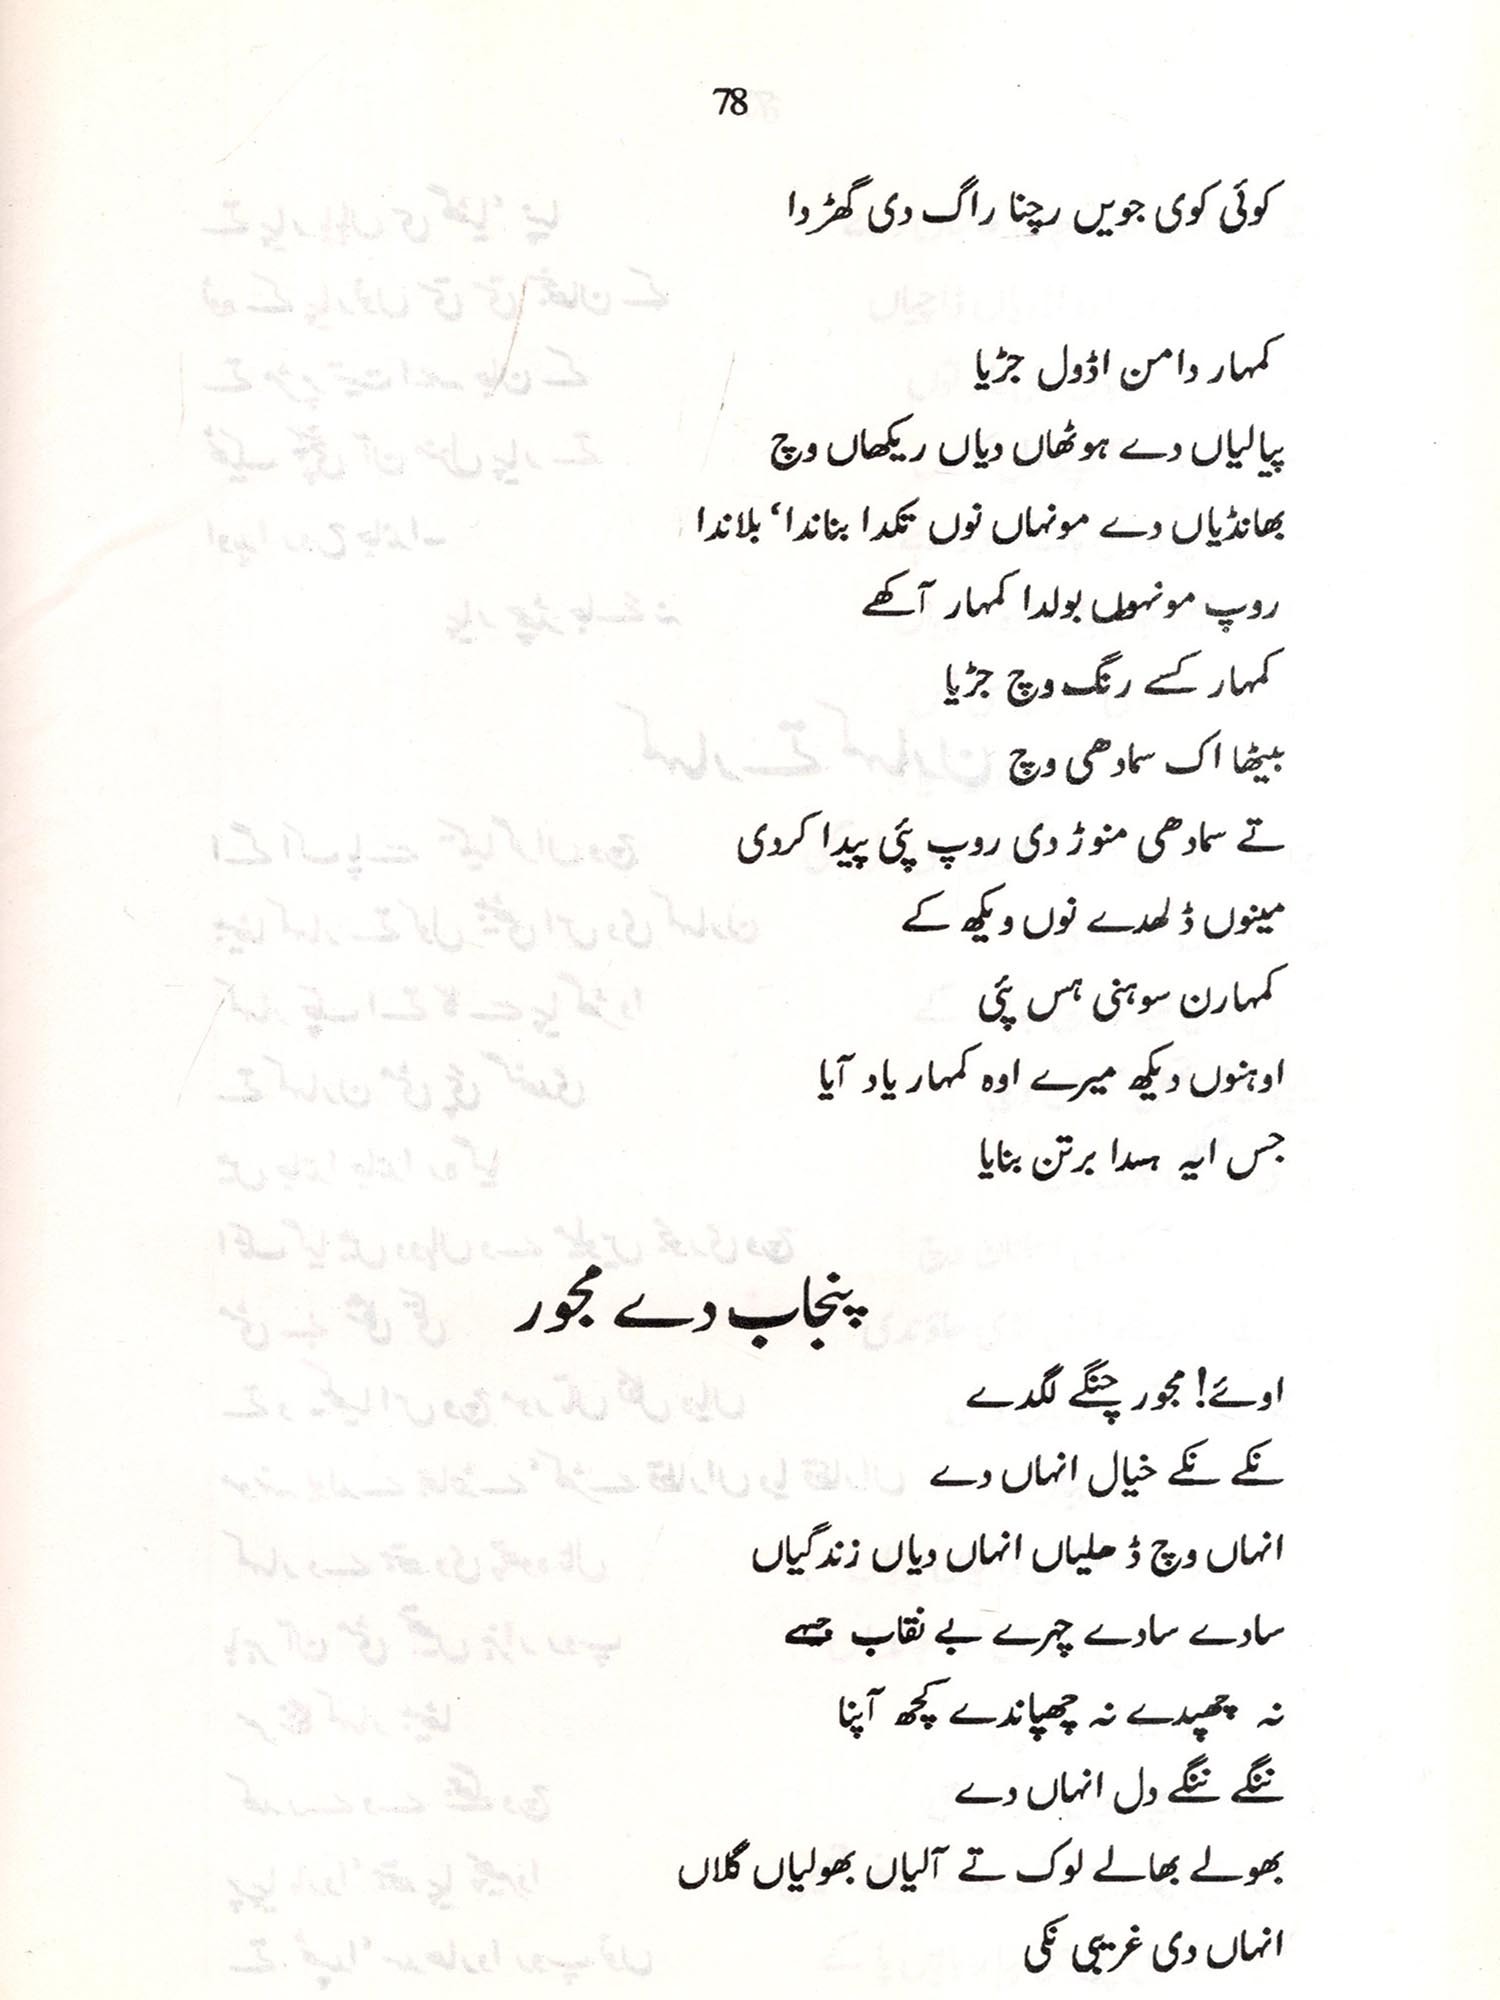 78
کوئی کوی جویں رچنا راگ دی گھڑدا
کمہار دامن اڈول جڑیا
پیالیاں دے ہوٹھاں دیاں ریکھاں وچ
بھانڈیاں دے مونہاں نوں تکدا بناندا، بلاندا
روپ مونہوں بولدا کمہار آکھے
کمہار کسے رنگ وچ جڑیا
بیٹھا اک سمادھی وچ
تے سمادھی منوڑ دی روپ پئی پیدا کردی
مینوں ڈلھدے نوں ویکھ کے
کمہارن سوہنی ہس پئی
اوہنوں دیکھ میرے اوہ کمہار یاد آیا
جس ایہ ہسدا برتن بنایا
پنجاب دے مجور
اوئے! مجور چنگے لگدے
نکے نکے خیال انہاں دے
انہاں وچ ڈھلیاں انہاں دیاں زندگیاں
سادے سادے چہرے بے نقاب
نہ چھپدے نہ چھپاندے کچھ آپنا
ننگے ننگے دل انہاں دے
بھولے بھالے لوک تے آلیاں بھولیاں گلاں
انہاں دی غریبی نکی